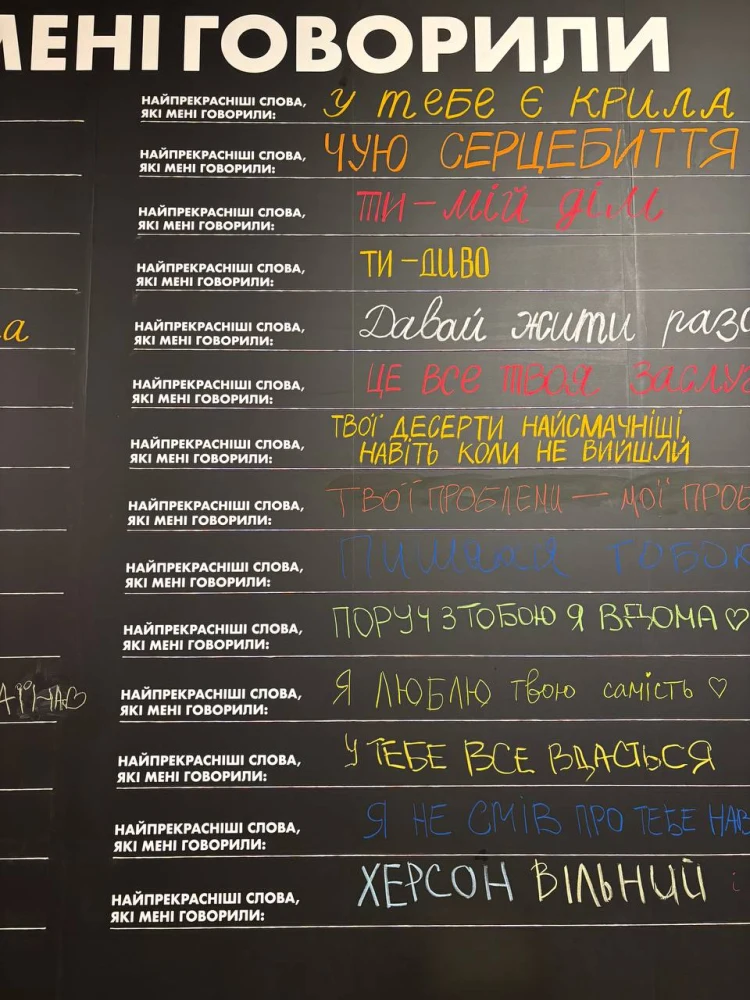 МЕНІ ГОВОРИЛИ
НАЙПРЕКРАСНІШІ СЛОВА,
ЯКІ МЕНІ ГОВОРИЛИ:
У ТЕБЕ Є КРИЛА
НАЙПРЕКРАСНІШІ СЛОВА,
ЯКІ МЕНІ ГОВОРИЛИ:
ЧУЮ СЕРЦЕБИТТЯ
НАЙПРЕКРАСНІШІ СЛОВА,
ЯКІ МЕНІ ГОВОРИЛИ:
ТИ – мій дім
НАЙПРЕКРАСНІШІ СЛОВА,
ЯКІ МЕНІ ГОВОРИЛИ:
ТИ – ДИВО
НАЙПРЕКРАСНІШІ СЛОВА,
ЯКІ МЕНІ ГОВОРИЛИ:
Давай жити разо
НАЙПРЕКРАСНІШІ СЛОВА,
ЯКІ МЕНІ ГОВОРИЛИ:
ЦЕ ВСЕ ТВОЯ ЗАСЛУ
НАЙПРЕКРАСНІШІ СЛОВА,
ЯКІ МЕНІ ГОВОРИЛИ:
ТВОЇ ДЕСЕРТИ НАЙСМАЧНІШІ,
НАВІТЬ КОЛИ НЕ ВИЙШЛИ
НАЙПРЕКРАСНІШІ СЛОВА,
ЯКІ МЕНІ ГОВОРИЛИ:
ТВОЇ ПРОБЛЕМИ – МОЇ ПРОБ
НАЙПРЕКРАСНІШІ СЛОВА,
ЯКІ МЕНІ ГОВОРИЛИ:
ТОБОЮ
НАЙПРЕКРАСНІШІ СЛОВА,
ЯКІ МЕНІ ГОВОРИЛИ:
ПОРУЧ З ТОБОЮ Я ВДОМА ♡
НАЙПРЕКРАСНІШІ СЛОВА,
ЯКІ МЕНІ ГОВОРИЛИ:
Я ЛЮБЛЮ твою самість ♡
НАЙПРЕКРАСНІШІ СЛОВА,
ЯКІ МЕНІ ГОВОРИЛИ:
У ТЕБЕ ВСЕ ВДАСТЬСЯ
НАЙПРЕКРАСНІШІ СЛОВА,
ЯКІ МЕНІ ГОВОРИЛИ:
Я НЕ СМІВ ПРО ТЕБЕ НАВ
НАЙПРЕКРАСНІШІ СЛОВА,
ЯКІ МЕНІ ГОВОРИЛИ:
ХЕРСОН ВІЛЬНИЙ